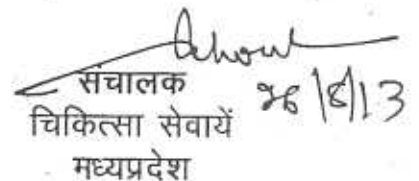 संचालक
26/8/13
चिकित्सा सेवायें
मध्यप्रदेश